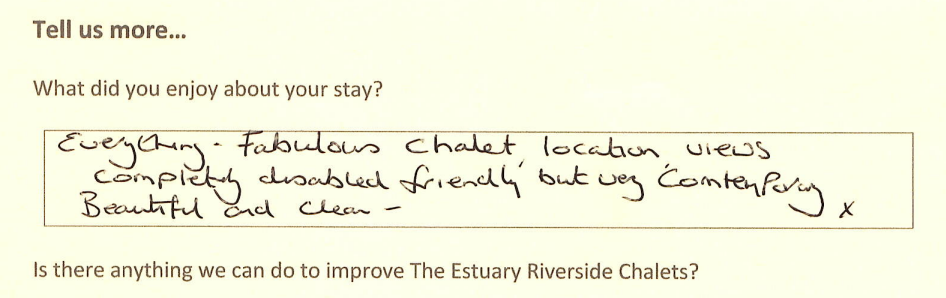 Tell us more...
What did you enjoy about your stay?
Everything - Fabulous Chalet, location, views
completely disabled friendly but very Contemporary
Beautiful and clean - x
Is there anything we can do to improve The Estuary Riverside Chalets?